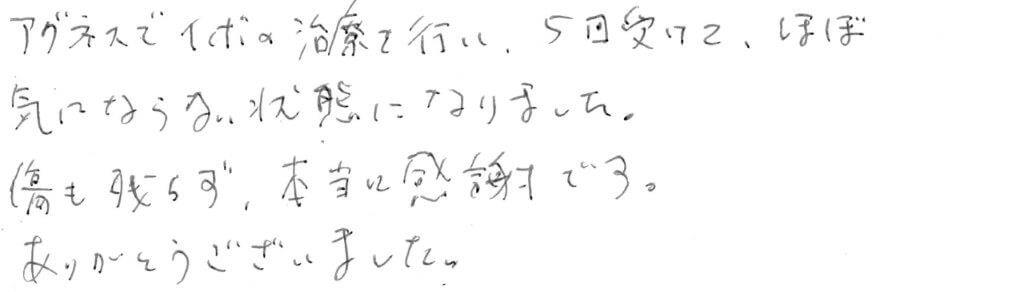 アグネスでイボの治療を行い、5回受けて、ほぼ
気にならない状態になりました。
傷も残らず、本当に感謝です。
ありがとうございました。